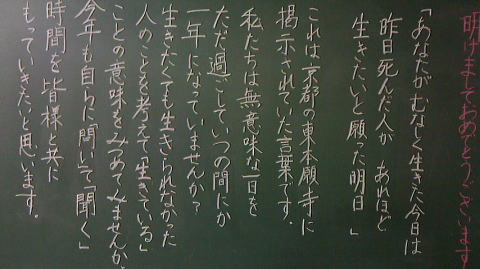 明けましておめでとうございます
「あなたがむなしく生きた今日は
昨日死んだ人が あれほど
生きたいと願った明日 」
これは、京都の東本願寺に
掲示されていた言葉です。
私たちは無意味な一日を
ただ過ごしていつの間にか
一年になっていませんか?
生きたくても生きられなかった
人のことを考えて「生きている」
ことの意味をみつめてみませんか。
今年も自らに「問いて」「聞く」
時間を皆様と共に
もっていきたいと思います。